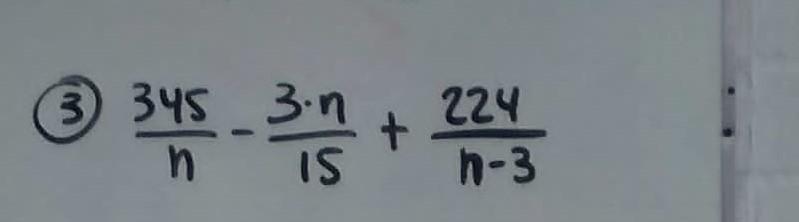 ③ 345/n - 3·n/15 + 224/n-3